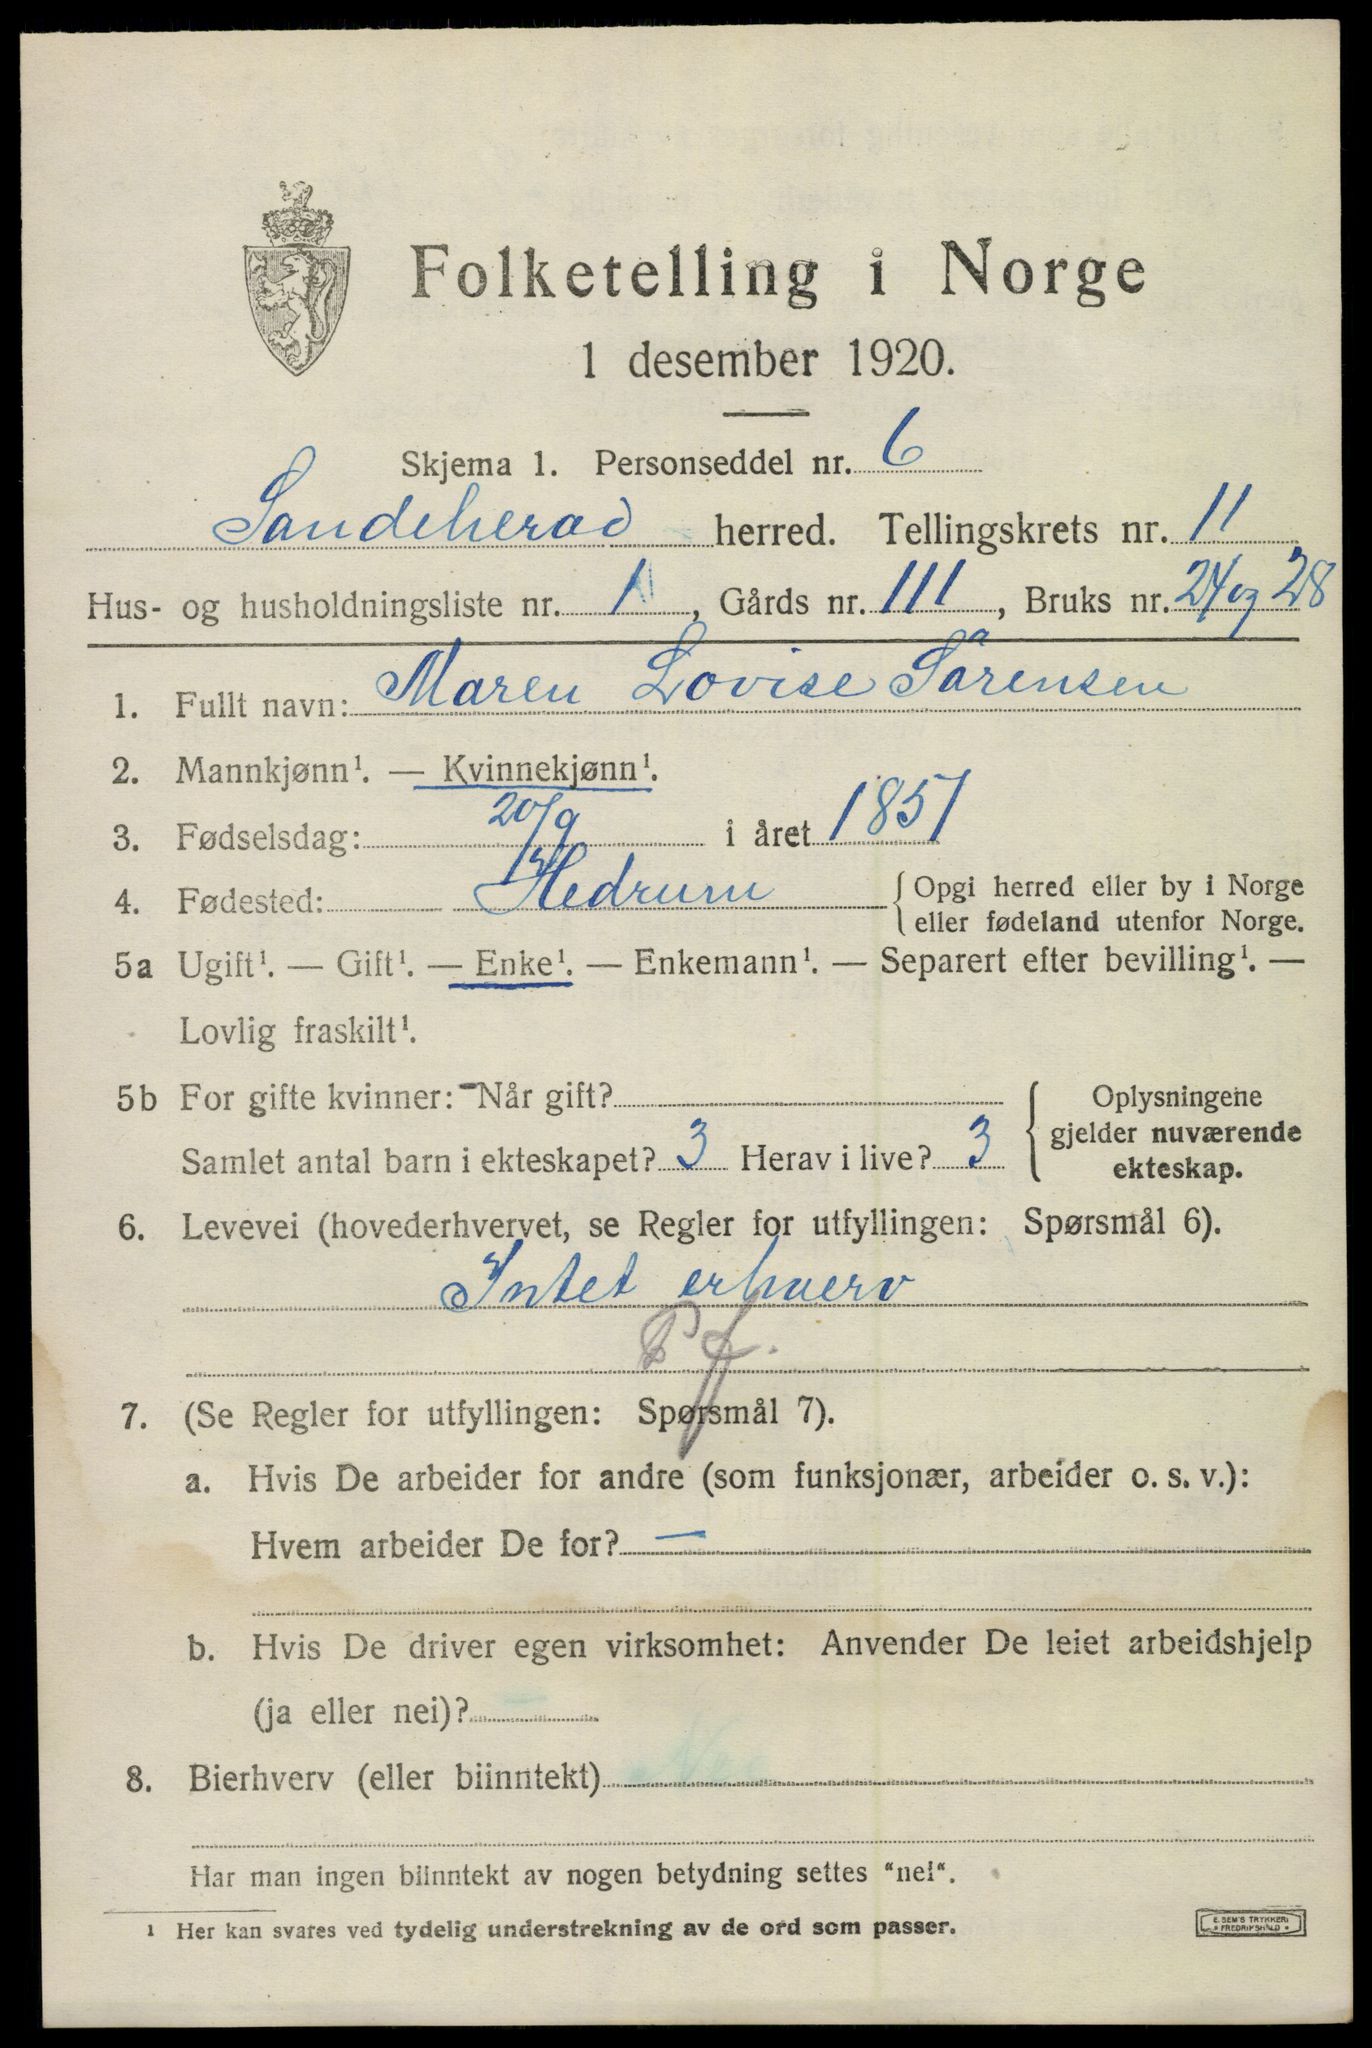 Folketelling i Norge
1 desember 1920.
Skjema 1. Personseddel nr. 6
Sandeherad herred. Tellingskrets nr. 11
Hus- og husholdningsliste nr. 1, Gårds nr. 111, Bruks nr. 24 og 28
1. Fullt navn: Maren Lovise Sørensen
2. Mannkjønn¹. — Kvinnekjønn¹.
3. Fødselsdag: 20/9 i året 1851
4. Fødested: Hedrum { Opgi herred eller by i Norge
eller fødeland utenfor Norge.
5a Ugift¹. — Gift¹. — Enke¹. — Enkemann¹. — Separert efter bevilling¹. —
Lovlig fraskilt¹.
5b For gifte kvinner: Når gift?
Samlet antal barn i ekteskapet? 3 Herav i live? 3
Oplysningene
gjelder nuværende
ekteskap.
6. Levevei (hovederhvervet, se Regler for utfyllingen: Spørsmål 6).
Intet erhverv
7. (Se Regler for utfyllingen: Spørsmål 7).
a. Hvis De arbeider for andre (som funksjonær, arbeider o. s. v.):
Hvem arbeider De for? —
b. Hvis De driver egen virksomhet: Anvender De leiet arbeidshjelp
(ja eller nei)? —
8. Bierhverv (eller biinntekt)
Har man ingen biinntekt av nogen betydning settes "nei".
¹ Her kan svares ved tydelig understrekning av de ord som passer.
E. SEM'S TRYKKERI
FREDRIKSHALD